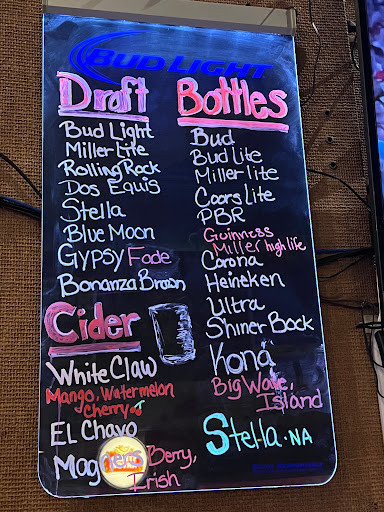 BUD LIGHT
Draft
Bud Light
Miller Lite
Rolling Rock
Dos Equis
Stella
Blue Moon
Gypsy Fade
Bonanza Brown
Cider
White Claw
Mango, Watermelon
Cherry
EL Chavo
Magners Berry,
Irish
Bottles
Bud
Bud lite
Miller lite
Coors lite
PBR
Guinness
Miller high life
Corona
Heineken
Ultra
Shiner Bock
Kona
Big Wave,
Island
Stella · NA